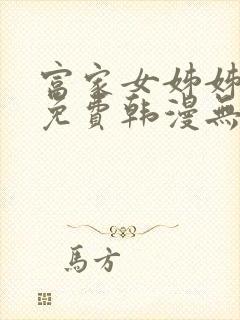 富家女姊姊
免費韩漫無
馬方